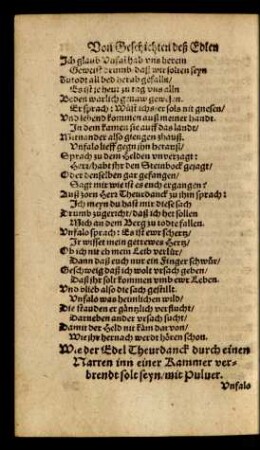 Von Geschichten deß Edlen
Ich glaub Vnfal hab vns herein
Geweist drumb/daß wir solten seyn
Zu todt all bed herab gefalln/
Es ist je heut zu tag vns alln
Beden warlich genaw gewesen.
Er sprach: Wüst ichs/er solt nit gnesen/
Vnd lebend kommen auß meiner handt.
In dem kamen sie auff das landt/
Miteinander also giengen zhauß.
Vnfalo lieff gegn jhn herauß/
Sprach zu dem Helden vnverzagt:
Herr/habt jhr den Steinbock gejagt/
Oder denselben gar gefangen/
Sagt mir wie ist es euch ergangen?
Auß zorn Herr Theurdanck zu jhm sprach:
Ich meyn du hast mir diese sach
Drumb zugericht/daß ich het sollen
Mich an dem Berg zu todte fallen.
Vnfalo sprach: Es ist ewr schertz/
Ir wisset mein getrewes Hertz/
Ob ich nit eh mein Leib verlür/
Dann daß euch nur ein Finger schwür/
Geschweig daß ich wolt vrsach geben/
Daß jhr solt kommen vmb ewr Leben.
Vnd blieb also die sach gestillt.
Vnfalo was heimlichen wild/
Die stauden er gäntzlich versucht/
Darneben ander vrsach sucht/
Damit der Held nit käm darvon/
Wie jhr hernach werdt hören schon.
Wie der Edel Theurdanck durch einen
Narren inn einer Kammer ver-
brendt solt seyn/mit Puluer.
Vnfalo